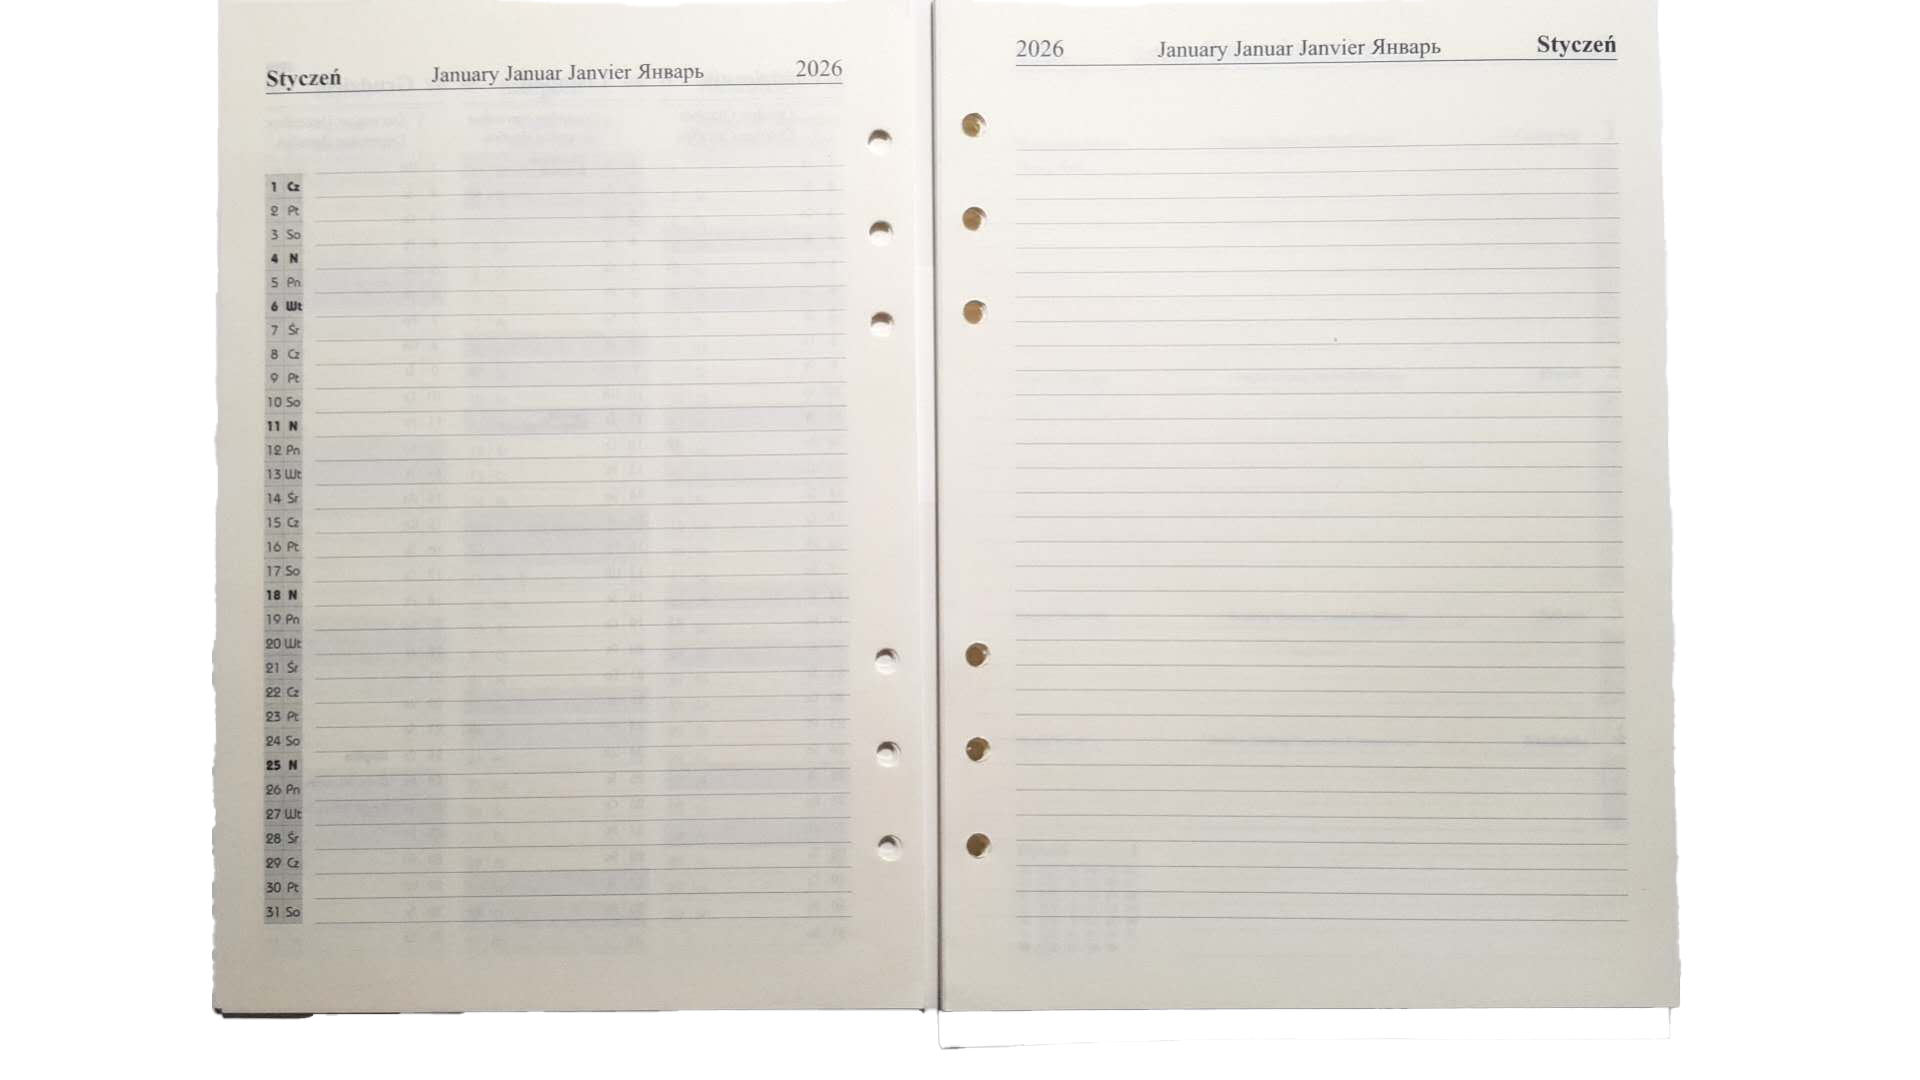 Styczeń January Januar Janvier Январь 2026
1 Cz
2 Pt
3 So
4 N
5 Pn
6 Wt
7 Śr
8 Cz
9 Pt
10 So
11 N
12 Pn
13 Wt
14 Śr
15 Cz
16 Pt
17 So
18 N
19 Pn
20 Wt
21 Śr
22 Cz
23 Pt
24 So
25 N
26 Pn
27 Wt
28 Śr
29 Cz
30 Pt
31 So
2026 January Januar Janvier Январь Styczeń